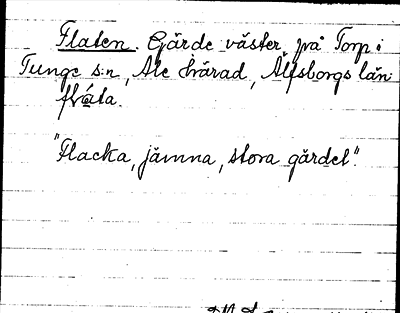 Flaten. Gärde väster på Torp i
Tunge s:n, Ale härad, Älfsborgs län
flåta.
"Flacka, jämna, stora gärdet".